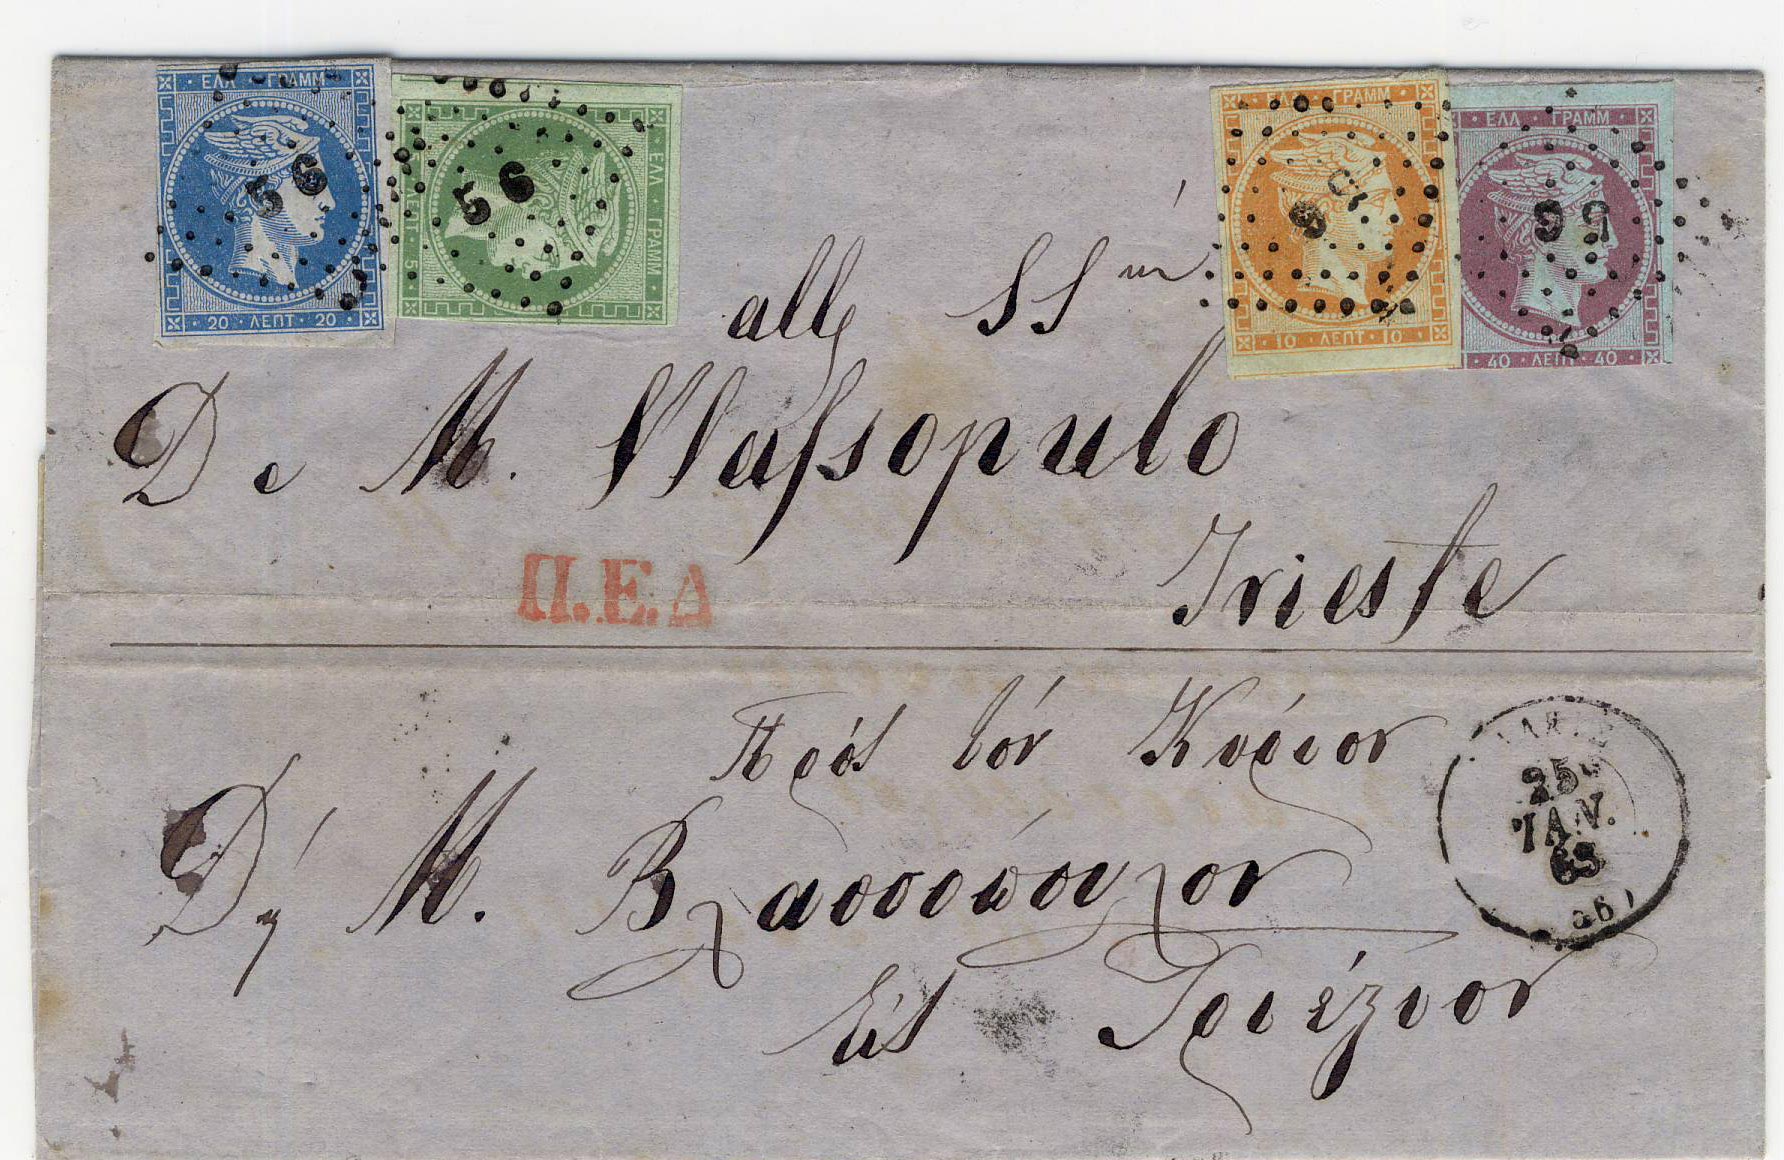 ΕΛΛ · ΓΡΑΜΜ
56
20 · ΛΕΠΤ · 20
ΕΛΛ · ΓΡΑΜΜ
56
5 · ΛΕΠΤ
ΕΛΛ · ΓΡΑΜΜ
56
10 · ΛΕΠΤ · 10
ΕΛΛ · ΓΡΑΜΜ
56
40 · ΛΕΠΤ · 40
alli SSri
D e M. Vlassopulo
Trieste
Π.Ε.Δ
Πρός τόν Κύριον
Δη M. Βλασσόπουλον
εἰς Τριέζιον
25
ΙΑΝ.
63
56